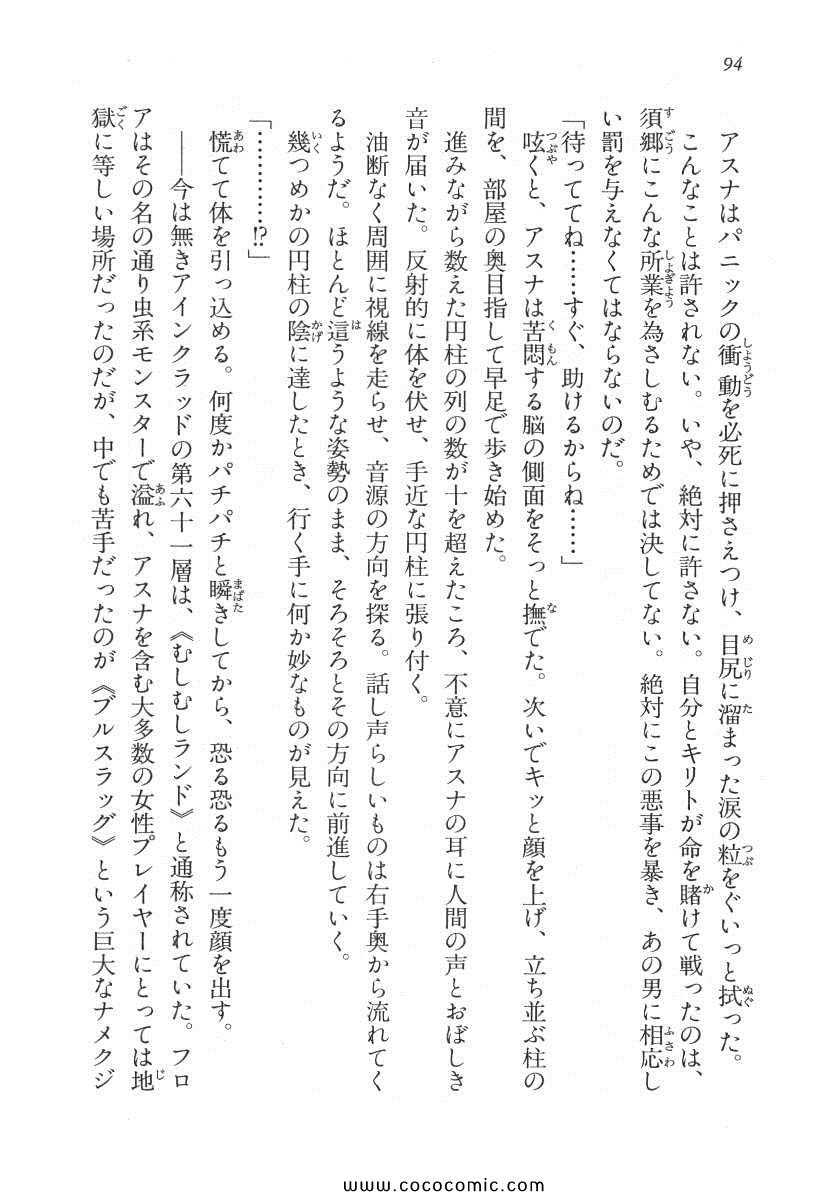 94
アスナはパニックの衝動を必死に押さえつけ、目尻に溜まった涙の粒をぐいっと拭った。
こんなことは許されない。いや、絶対に許さない。自分とキリトが命を賭けて戦ったのは、
須郷にこんな所業を為さしむるためでは決してない。絶対にこの悪事を暴き、あの男に相応し
い罰を与えなくてはならないのだ。
「待っててね……すぐ、助けるからね……」
呟くと、アスナは苦悶する脳の側面をそっと撫でた。次いでキッと顔を上げ、立ち並ぶ柱の
間を、部屋の奥目指して早足で歩き始めた。
進みながら数えた円柱の列の数が十を超えたころ、不意にアスナの耳に人間の声とおぼしき
音が届いた。反射的に体を伏せ、手近な円柱に張り付く。
油断なく周囲に視線を走らせ、音源の方向を探る。話し声らしいものは右手奥から流れてく
るようだ。ほとんど這うような姿勢のまま、そろそろとその方向に前進していく。
幾つめかの円柱の陰に達したとき、行く手に何か妙なものが見えた。
「…………!?」
慌てて体を引っ込める。何度かパチパチと瞬きしてから、恐る恐るもう一度顔を出す。
――今は無きアインクラッドの第六十一層は、《むしむしランド》と通称されていた。フロ
アはその名の通り虫系モンスターで溢れ、アスナを含む大多数の女性プレイヤーにとっては地
獄に等しい場所だったのだが、中でも苦手だったのが《ブルスラッグ》という巨大なナメクジ
www.cococomic.com